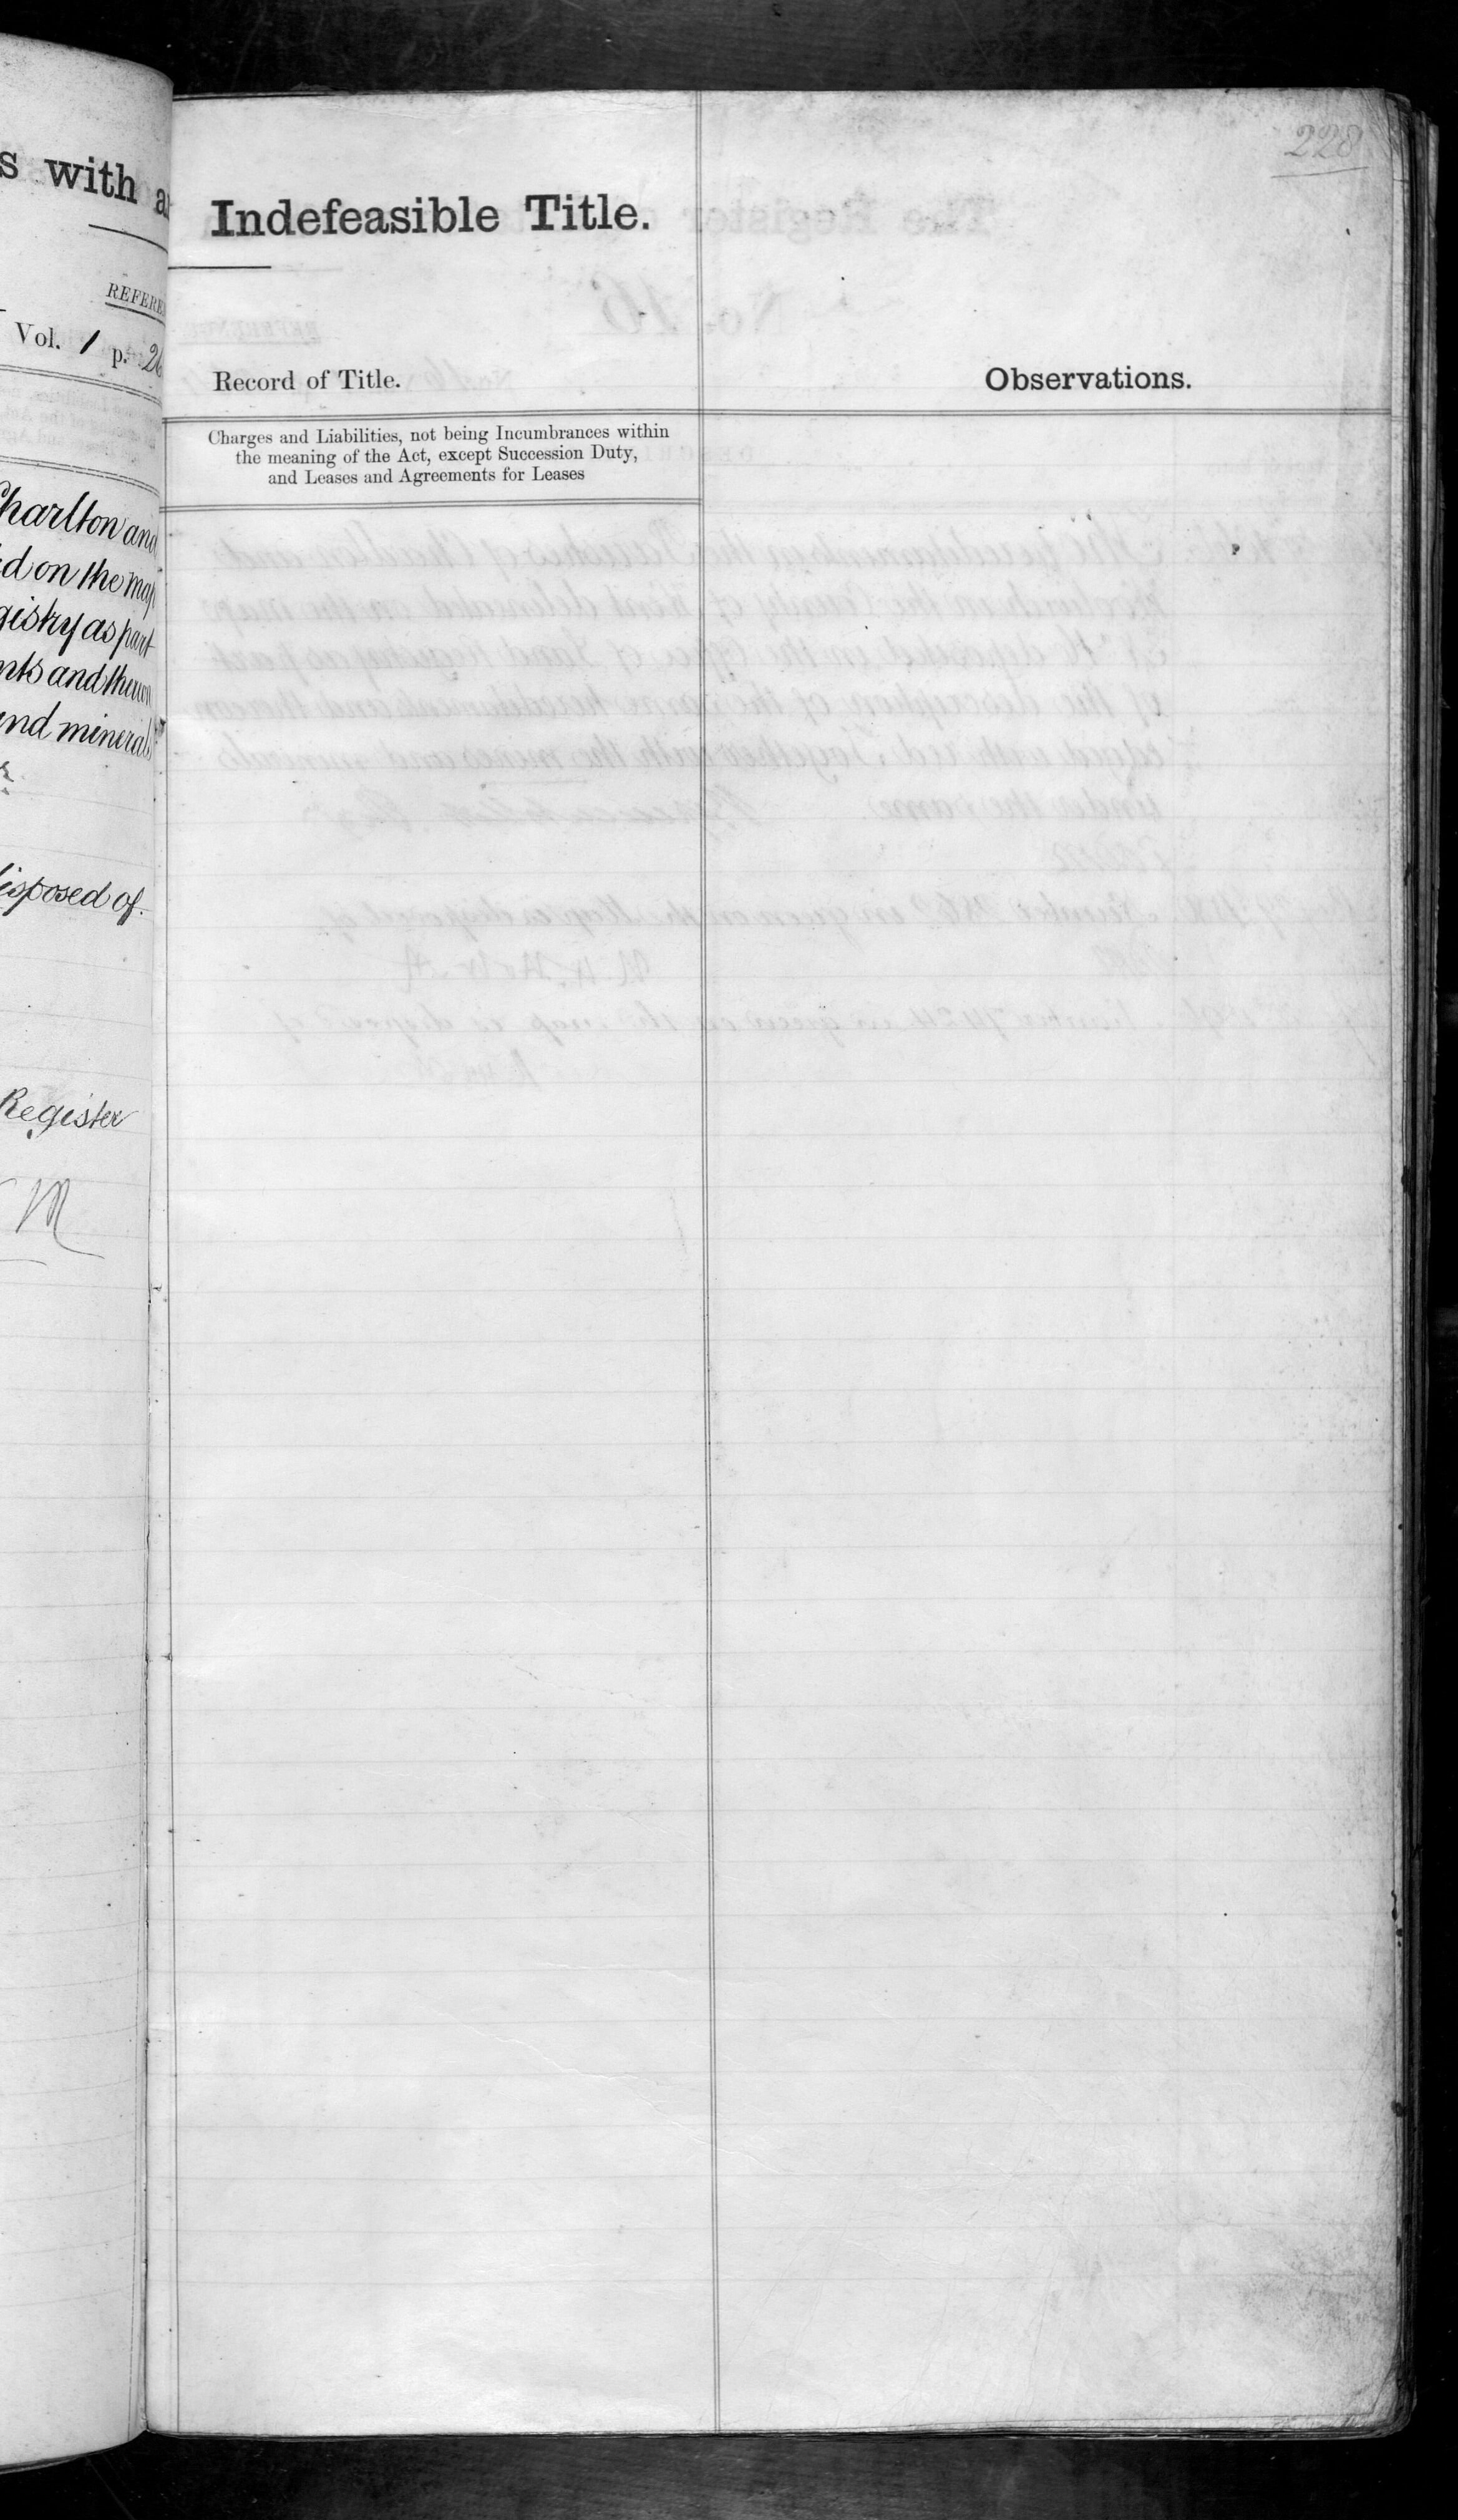 s with a
REFERE
Vol. 1 p. 26
Charlton and
d on the map
gistry as part
nts and thereon
and minerals
isposed of.
Register
M
228
Indefeasible Title.
Record of Title.
Observations.
Charges and Liabilities, not being Incumbrances within
the meaning of the Act, except Succession Duty,
and Leases and Agreements for Leases